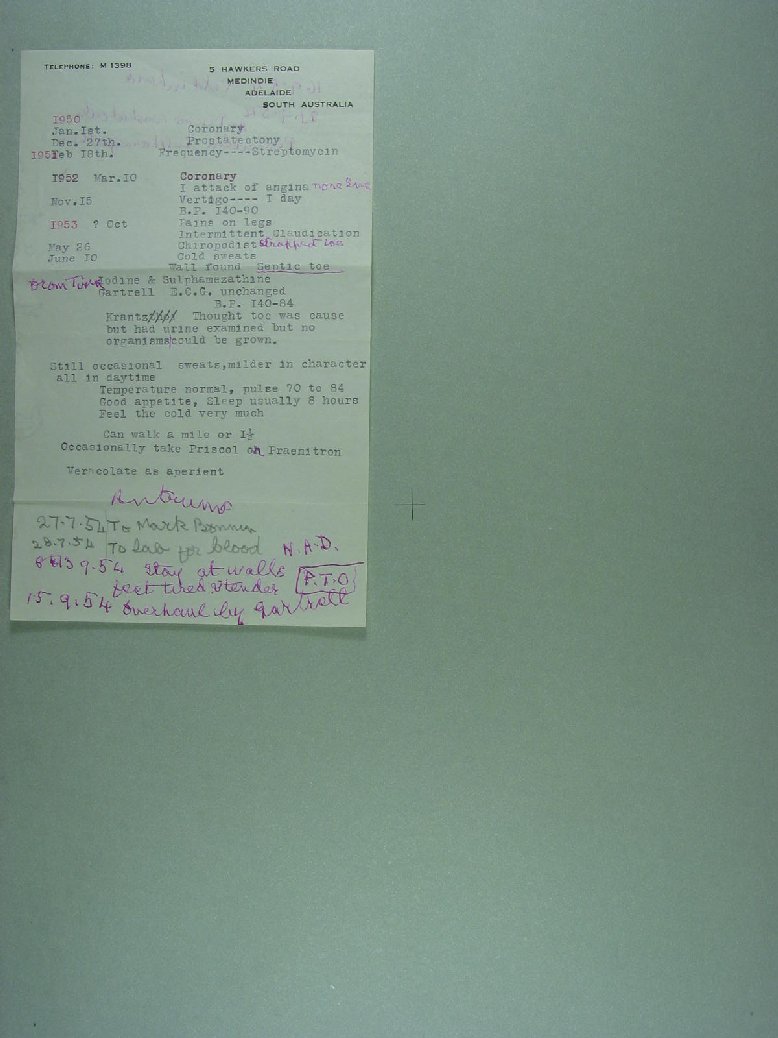 TELEPHONE: M 1398
5 HAWKERS ROAD
MEDINDIE
ADELAIDE
SOUTH AUSTRALIA
1950
Jan.Ist. Coronary
Dec. 27th. Prostatectony
1951Feb I8th. Frequency----Streptomycin
I952 Mar.IO Coronary
I attack of angina none since
Nov.I5 Vertigo---- I day
B.P. I40-90
I953 ? Oct Pains on legs
Intermittent Claudication
May 26 Chiropodist strapped toe
June IO Cold sweats
Wall found Septic toe
Iodine & Sulphamezathine
Gartrell E.C.G. unchanged
B.P. I40-84
Krantz//// Thought toe was cause
but had urine examined but no
organisms could be grown.
Still occasional sweats,milder in character
all in daytime
Temperature normal, pulse 70 to 84
Good appetite, Sleep usually 8 hours
Feel the cold very much
Can walk a mile or I½
Occasionally take Priscol on Praenitron
Veracolate as aperient
27.7.54 To Mark Bonnin
28.7.54 To lab for blood N.A.D.
9.54 stay at walls
feet tired & tender P.T.O
15.9.54 overhaul by Gartrell